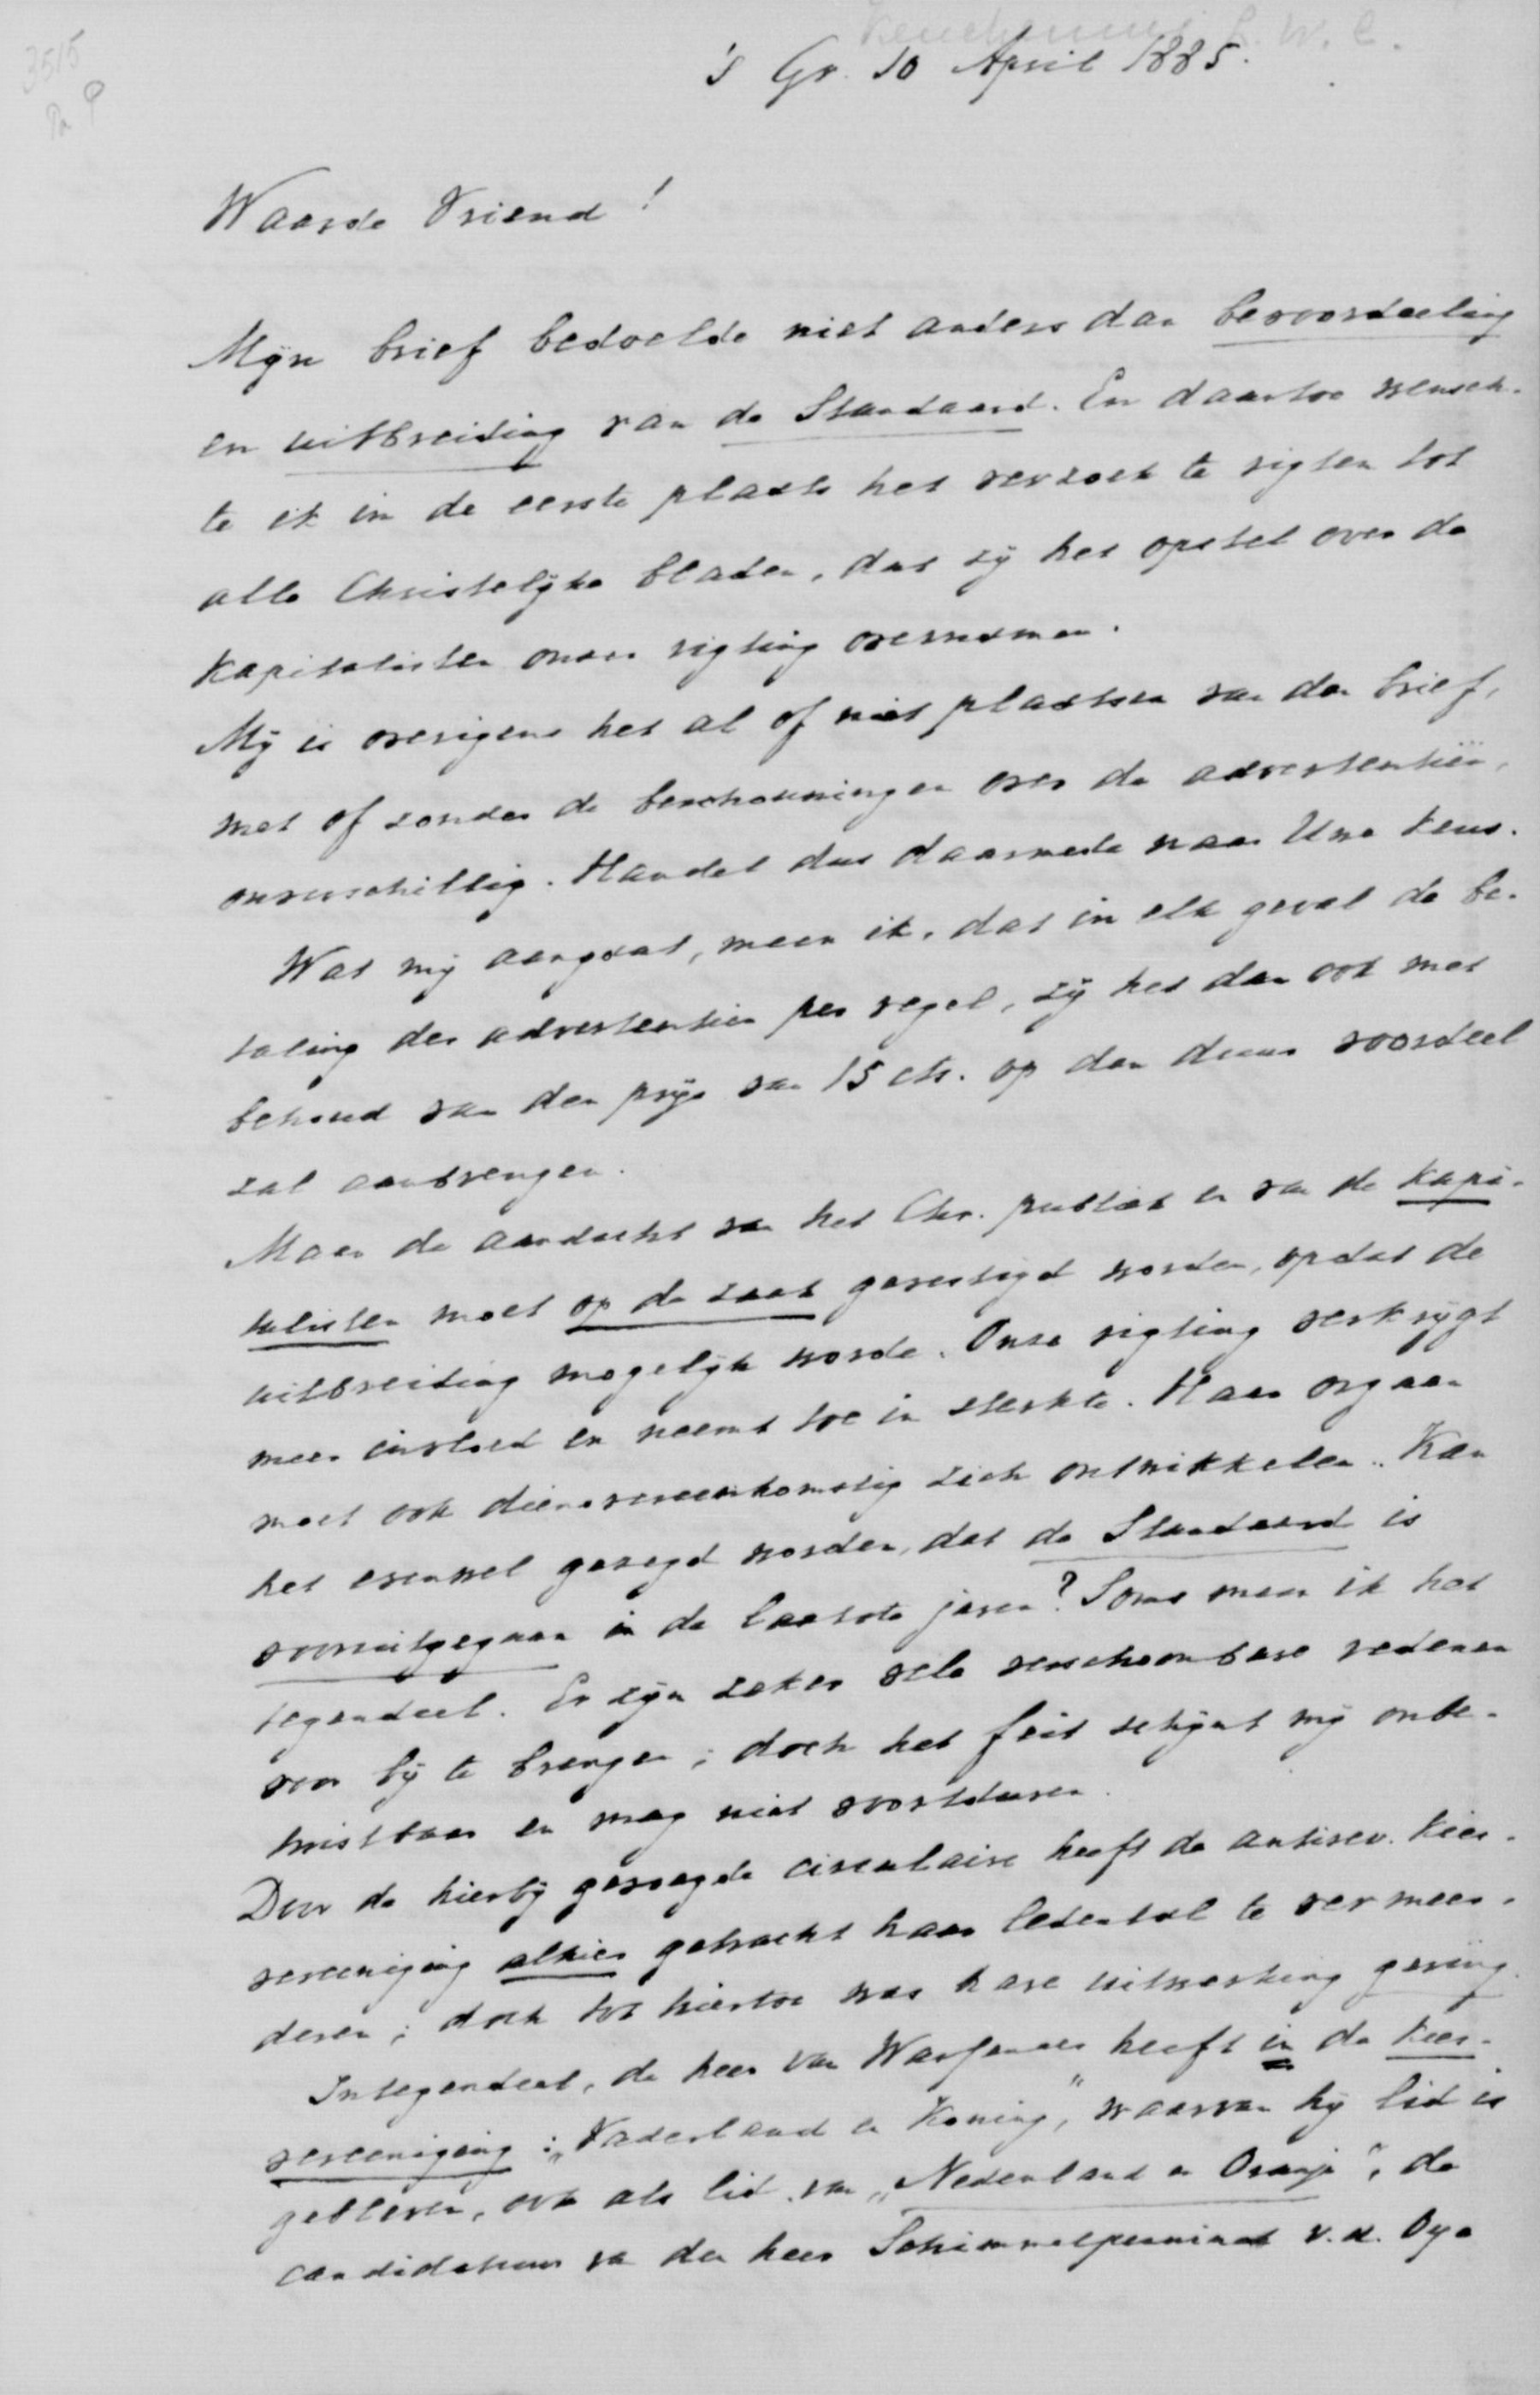 Keuchenius L. W. C.
3515
's Gr. 10 April 1885.
Waarde Vriend!
Mijn brief bedoelde niet anders dan bevoordeeling
en uitbreiding van de Standaard. En daartoe wensch-
te ik in de eerste plaats het verzoek te rigten tot
alle Christelijke bladen, dat zij het opstel over de
kapitalisten onzer rigting overnamen.
Mij is overigens het al of niet plaatsen van den brief,
met of zonder de beschouwingen over de advertentiën,
onverschillig. Handel dus daarmede naar Uwe keus.
Wat mij aangaat, meen ik, dat in elk geval de be-
taling der advertentien per regel, zij het dan ook met
behoud van den prijs van 15 cts. op den duur voordeel
zal aanbrengen.
Maar de aandacht van het Chr. publiek en van de kapi-
talisten moet op de zaak gevestigd worden, opdat de
uitbreiding mogelijk worde. Onze rigting verkrijgt
meer invloed en neemt toe in sterkte. Haar orgaan
moet ook dienovereenkomstig zich ontwikkelen. Kan
het evenwel gezegd worden, dat de Standaard is
vooruitgegaan in de laatste jaren? Soms meen ik het
tegendeel. Er zijn zeker vele verschoonbare redenen
voor bij te brengen; doch het feit schijnt mij onbe-
twistbaar en mag niet voortduren.
Door de hierbij gevoegde circulaire heeft de antirev. kies-
vereeniging alhier getracht haar ledental te vermeer-
deren; doch tot hiertoe was hare uitwerking gering.
Integendeel, de heer van Wassenaer heeft in de kies-
vereeniging: "Vaderland en Koning," waarvan hij lid is
gebleven, ook als lid van "Nederland en Oranje", de
candidatuur van den heer Schimmelpenninck v.d. Oye